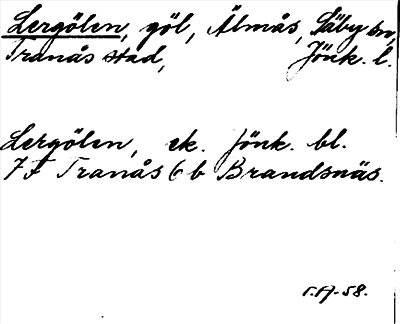 Lergölen, göl, Älmås, Säby sn,
Tranås stad, Jönk. l.
Lergölen, ek. Jönk. bl.
7F Tranås 6 b Brandsnäs.
T.A-58.